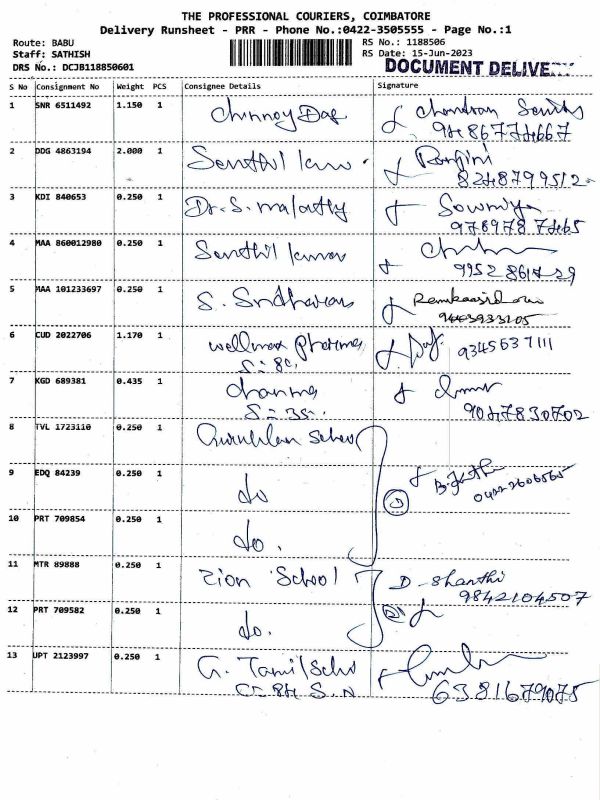 THE PROFESSIONAL COURIERS, COIMBATORE
Delivery Runsheet - PRR - Phone No.:0422-3505555 - Page No.:1
Route: BABU
Staff: SATHISH
DRS No.: DCJB118850601
RS No.: 1188506
RS Date: 15-Jun-2023
DOCUMENT DELIVE
S No Consignment No Weight PCS Consignee Details Signature
1 SNR 6511492 1.150 1
9486774667
2 DDG 4863194 2.000 1 Senthil kum Ranjini
8248799512
3 KDI 840653 0.250 1 Dr. S. malathy Sowmiya
9789787465
4 MAA 860012980 0.250 1 Senthil kumar
9952861729
5 MAA 101233697 0.250 1 S. Sridharan
9443933205
6 CUD 2022706 1.170 1 wellmax pharma 9345637111
7 KGD 689381 0.435 1
9047830702
8 TVL 1723110 0.250 1
9 EDQ 84239 0.250 1 do
0422 2606565
10 PRT 709854 0.250 1 do.
11 MTR 89888 0.250 1 Zion School D. Shanthi
9842104507
12 PRT 709582 0.250 1 do. 2
13 UPT 2123997 0.250 1 G. Tamil
6381679075